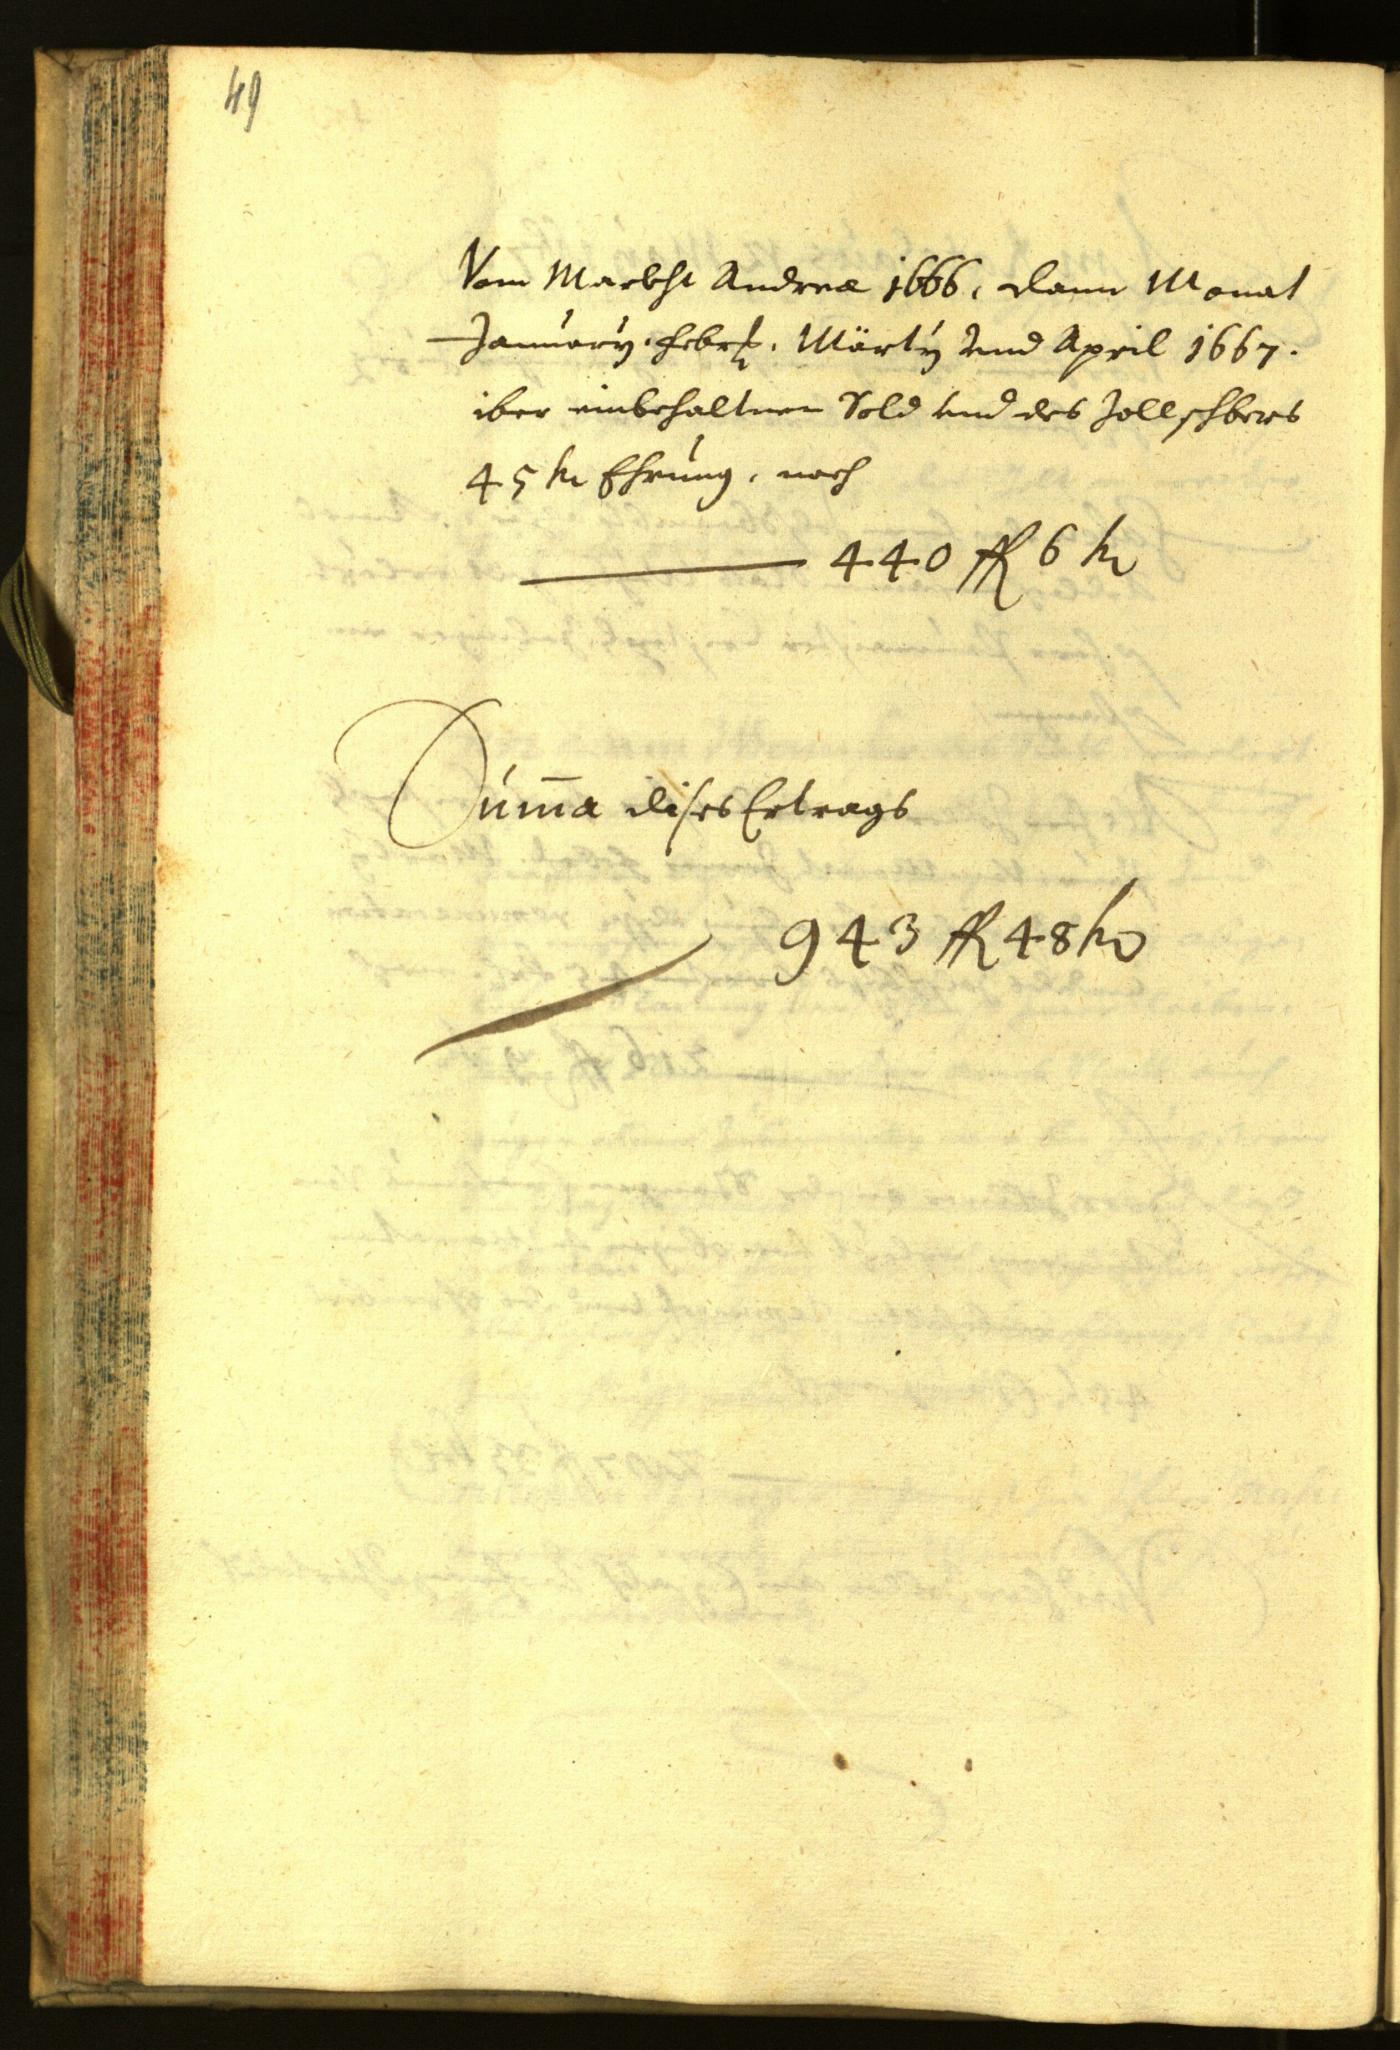 49
Vom Markht Andreæ 1666, dann Monat
January. Febr. Märty und April 1667.
iber einbehaltnen Sold und des Zollschbers
45 kr Ehrung, noch
440 fl 6 kr
Suma dises Ertrags
943 fl 48 kr